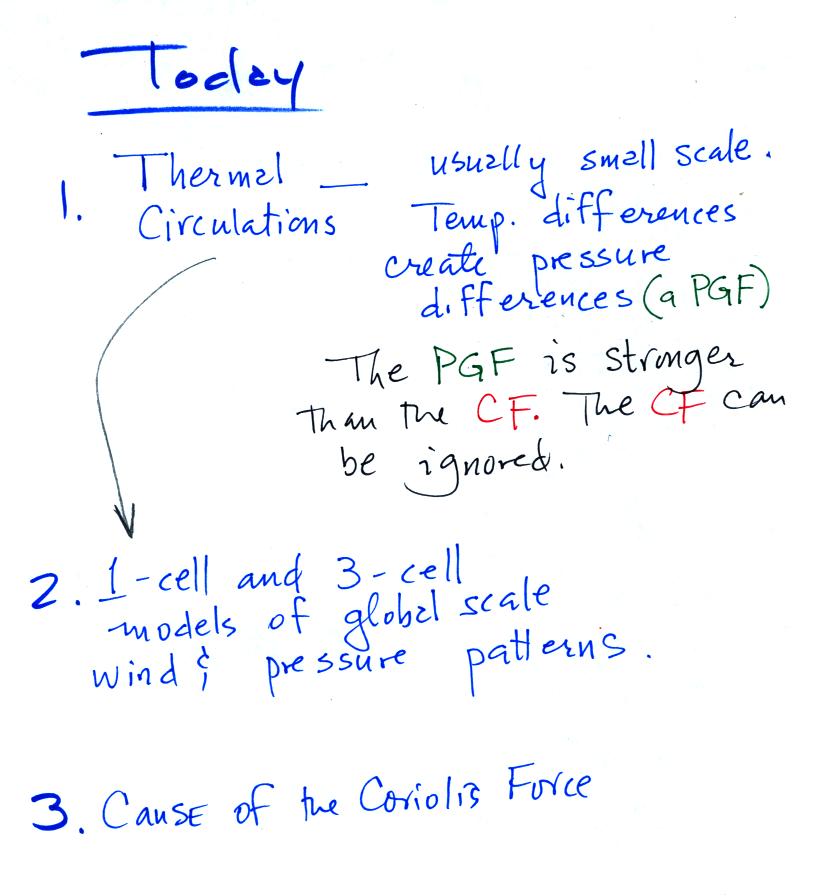 Today
1. Thermal — usually small scale.
Circulations Temp. differences
create pressure
differences (a PGF)
The PGF is stronger
than the CF. The CF can
be ignored.
2. 1-cell and 3-cell
models of global scale
wind & pressure patterns.
3. Cause of the Coriolis Force